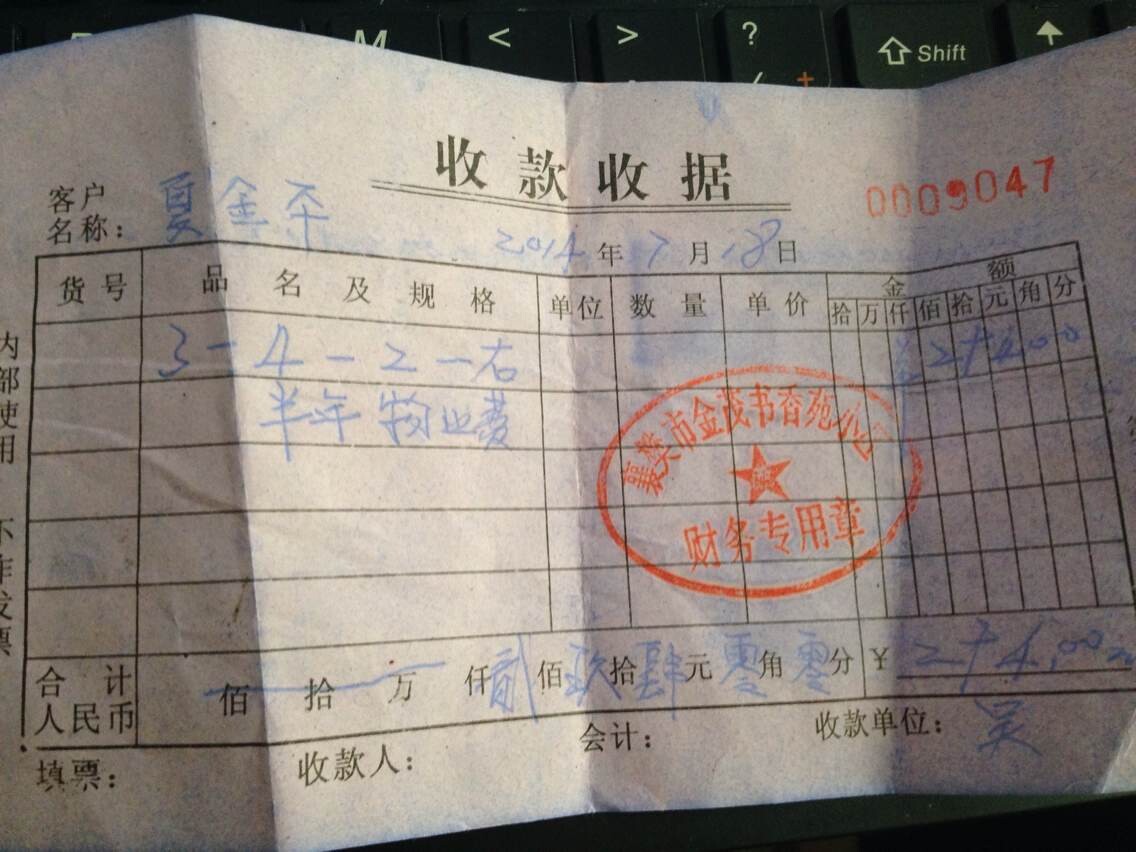 M < > ?
Shift
收款收据
0009047
客户
名称： 夏金平
2014 年 7 月 18 日
货号 品名及规格 单位 数量 单价 金额
拾 万 仟 佰 拾 元 角 分
3-4-2-右
半年物业费
襄樊市金茂书香苑小区
财务专用章
合计
人民币 佰 拾 万 仟 贰 佰 玖 拾 肆 元 零 角 零 分 ¥ 294.00
填票： 收款人： 会计： 收款单位： 吴
内部使用 不作发票